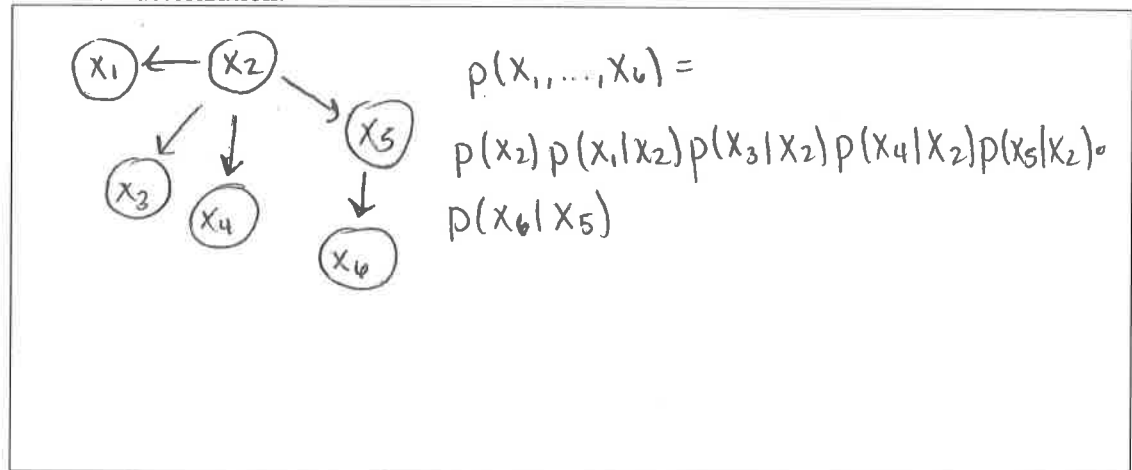 X1
X2
X3
X4
X5
X6
p(X1,...,X6) =
p(X2)p(X1|X2)p(X3|X2)p(X4|X2)p(X5|X2)·
p(X6|X5)